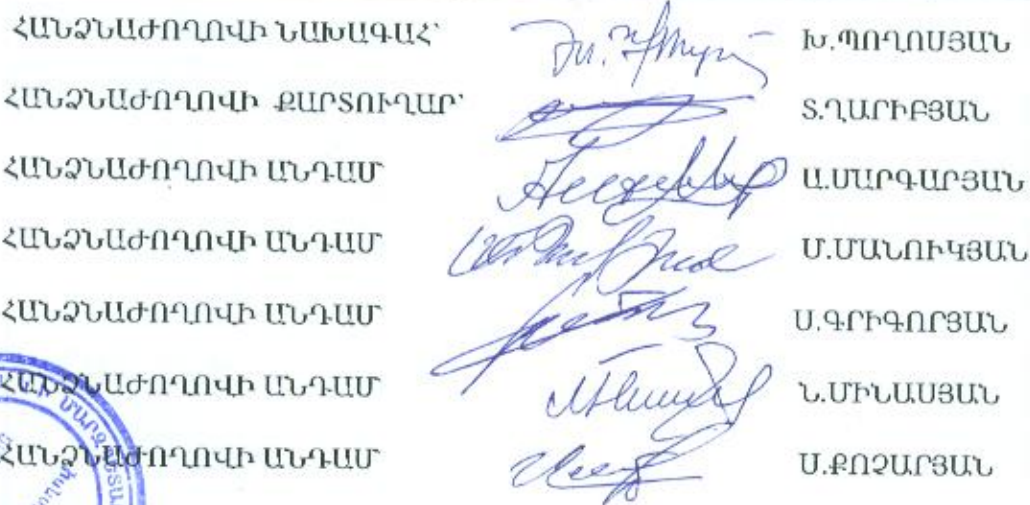 ՀԱՆՁՆԱԺՈՂՈՎԻ ՆԱԽԱԳԱՀ՝ Խ.ՊՈՂՈՍՅԱՆ
ՀԱՆՁՆԱԺՈՂՈՎԻ ՔԱՐՏՈՒՂԱՐ՝ Տ.ՂԱՐԻԲՅԱՆ
ՀԱՆՁՆԱԺՈՂՈՎԻ ԱՆԴԱՄ Ա.ՄԱՐԳԱՐՅԱՆ
ՀԱՆՁՆԱԺՈՂՈՎԻ ԱՆԴԱՄ Մ.ՄԱՆՈՒԿՅԱՆ
ՀԱՆՁՆԱԺՈՂՈՎԻ ԱՆԴԱՄ Ս.ԳՐԻԳՈՐՅԱՆ
ՀԱՆՁՆԱԺՈՂՈՎԻ ԱՆԴԱՄ Ն.ՄԻՆԱՍՅԱՆ
ՀԱՆՁՆԱԺՈՂՈՎԻ ԱՆԴԱՄ Ս.ՔՈՉԱՐՅԱՆ
ՄԱՐԶ